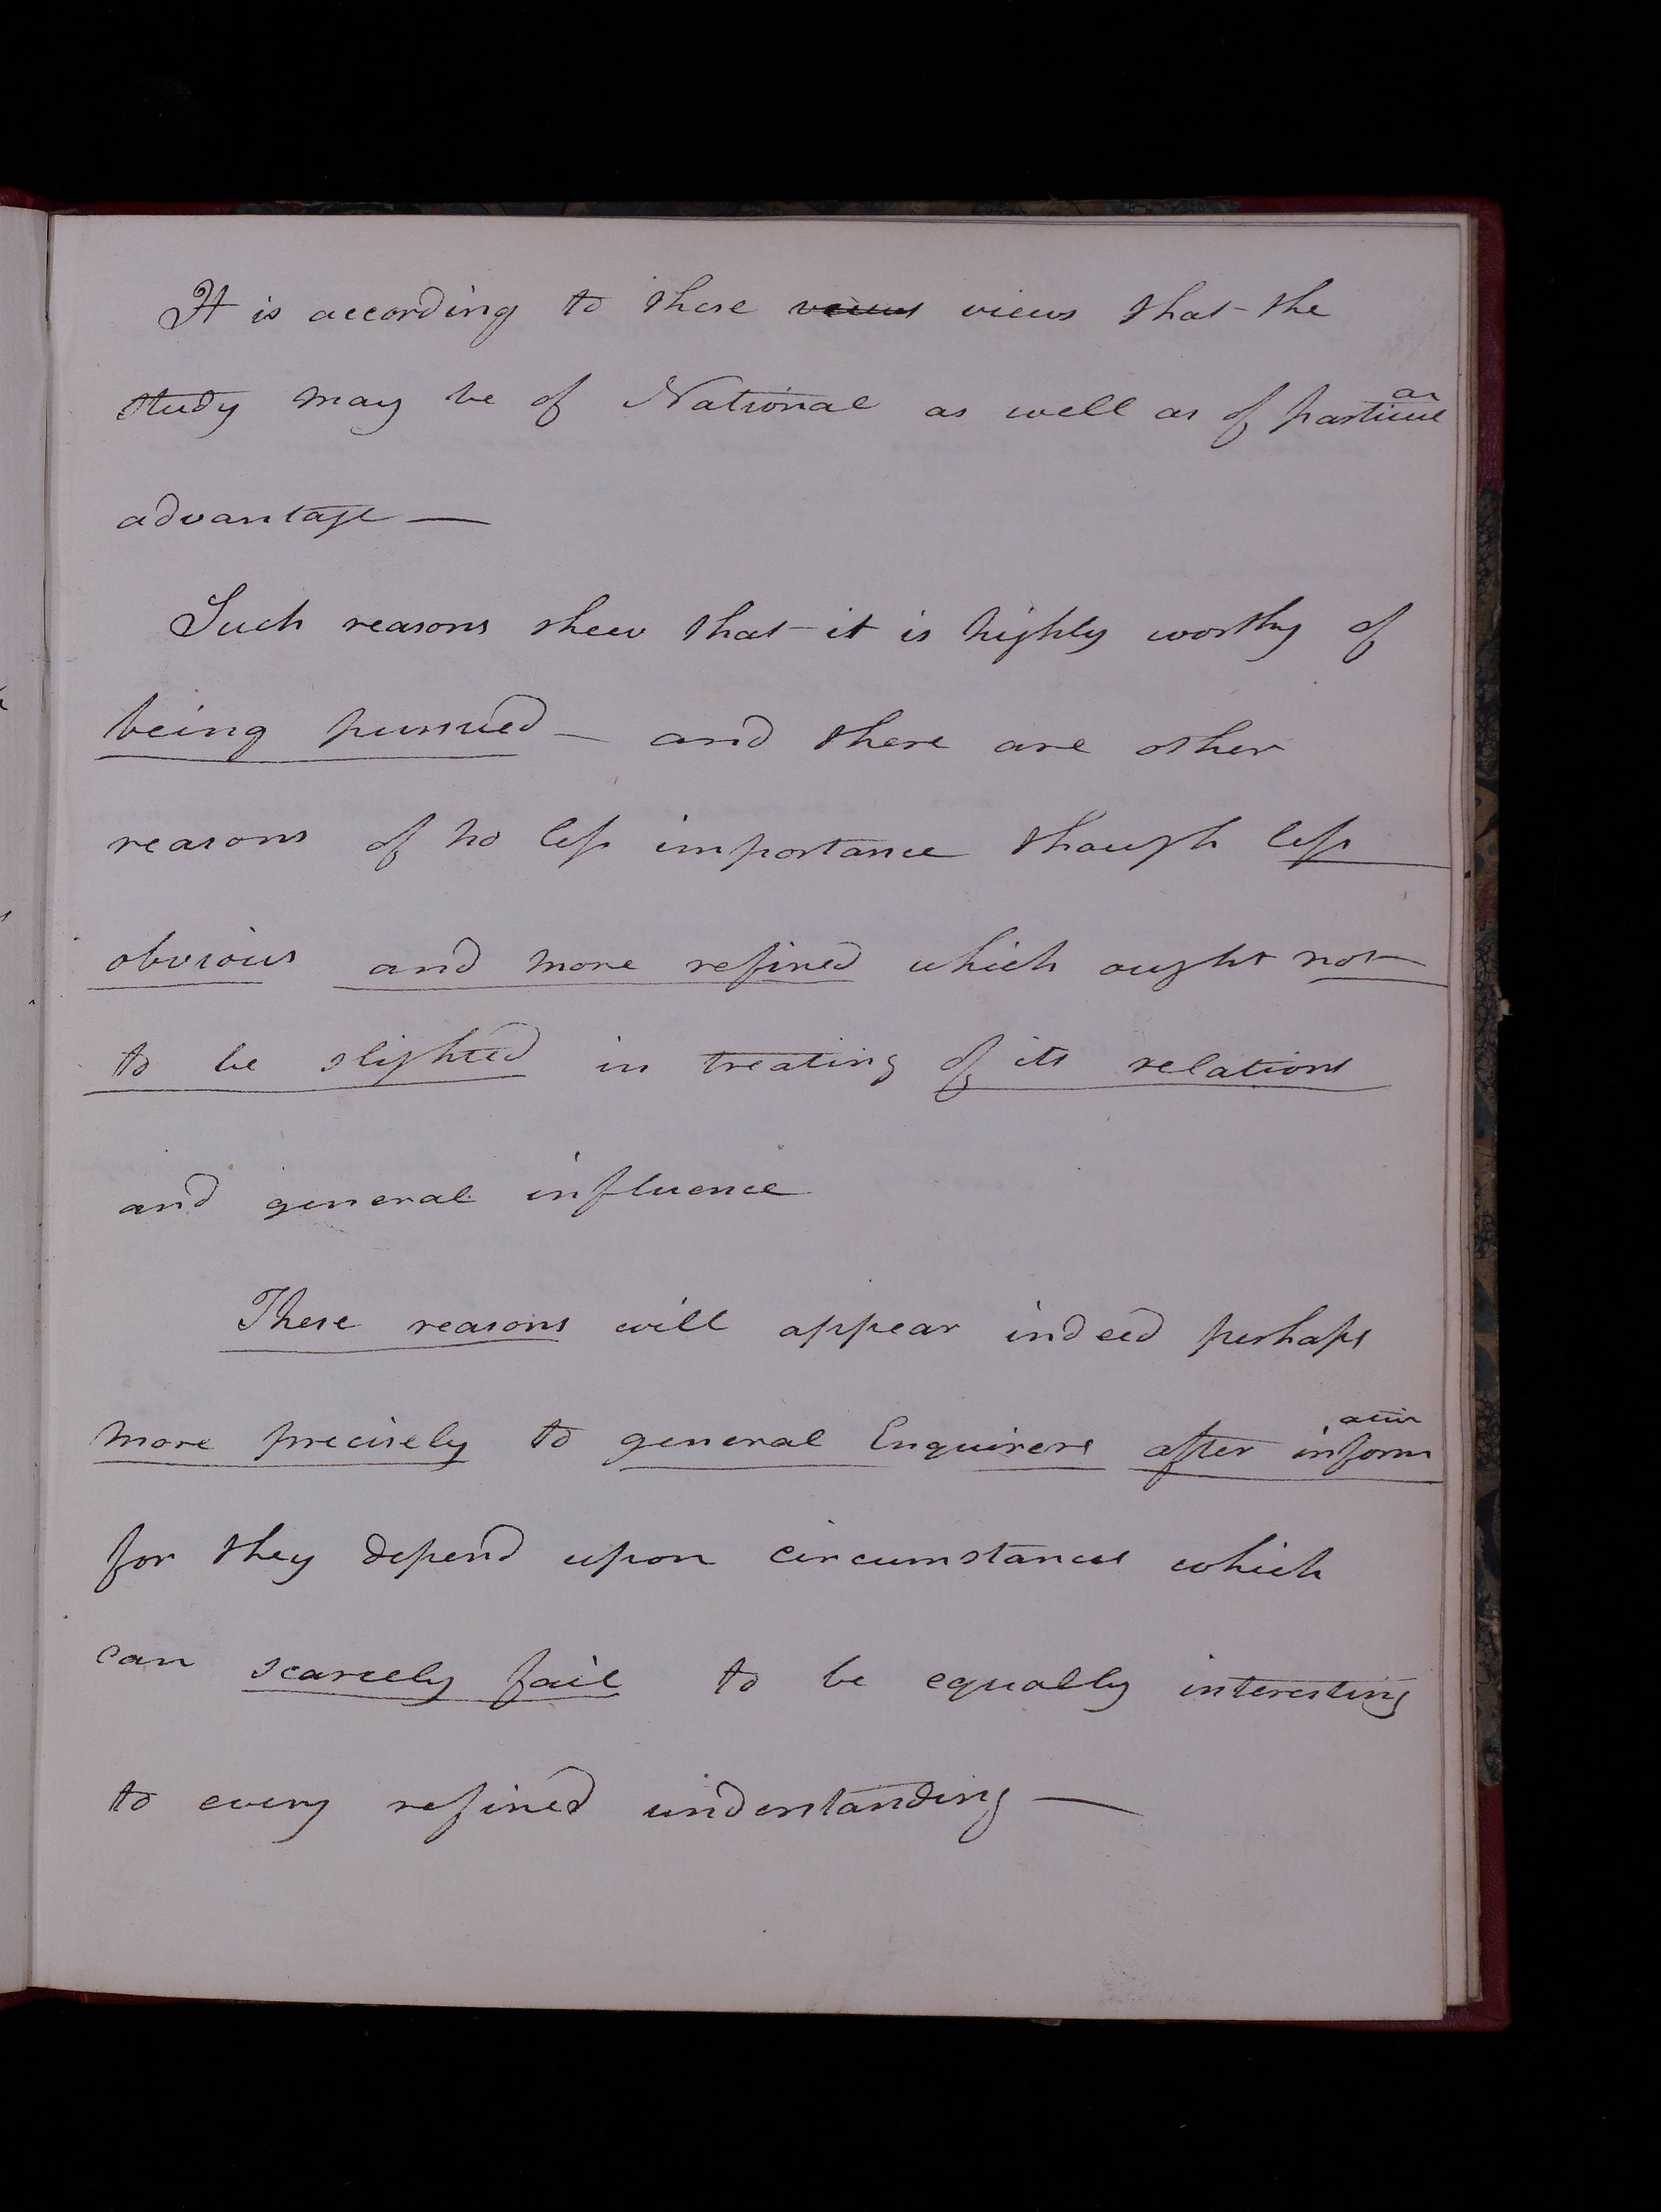 It is according to these veiws views that the
study may be of National as well as of particular
advantage —
Such reasons shew that it is highly worthy of
being pursued — and there are other
reasons of no less importance though less
obvious and more refined which ought not
to be slighted in treating of its relations
and general influence
These reasons will appear indeed perhaps
more precisely to general Enquirers after information
for they depend upon circumstances which
can scarcely fail to be equally interesting
to every refined understanding —